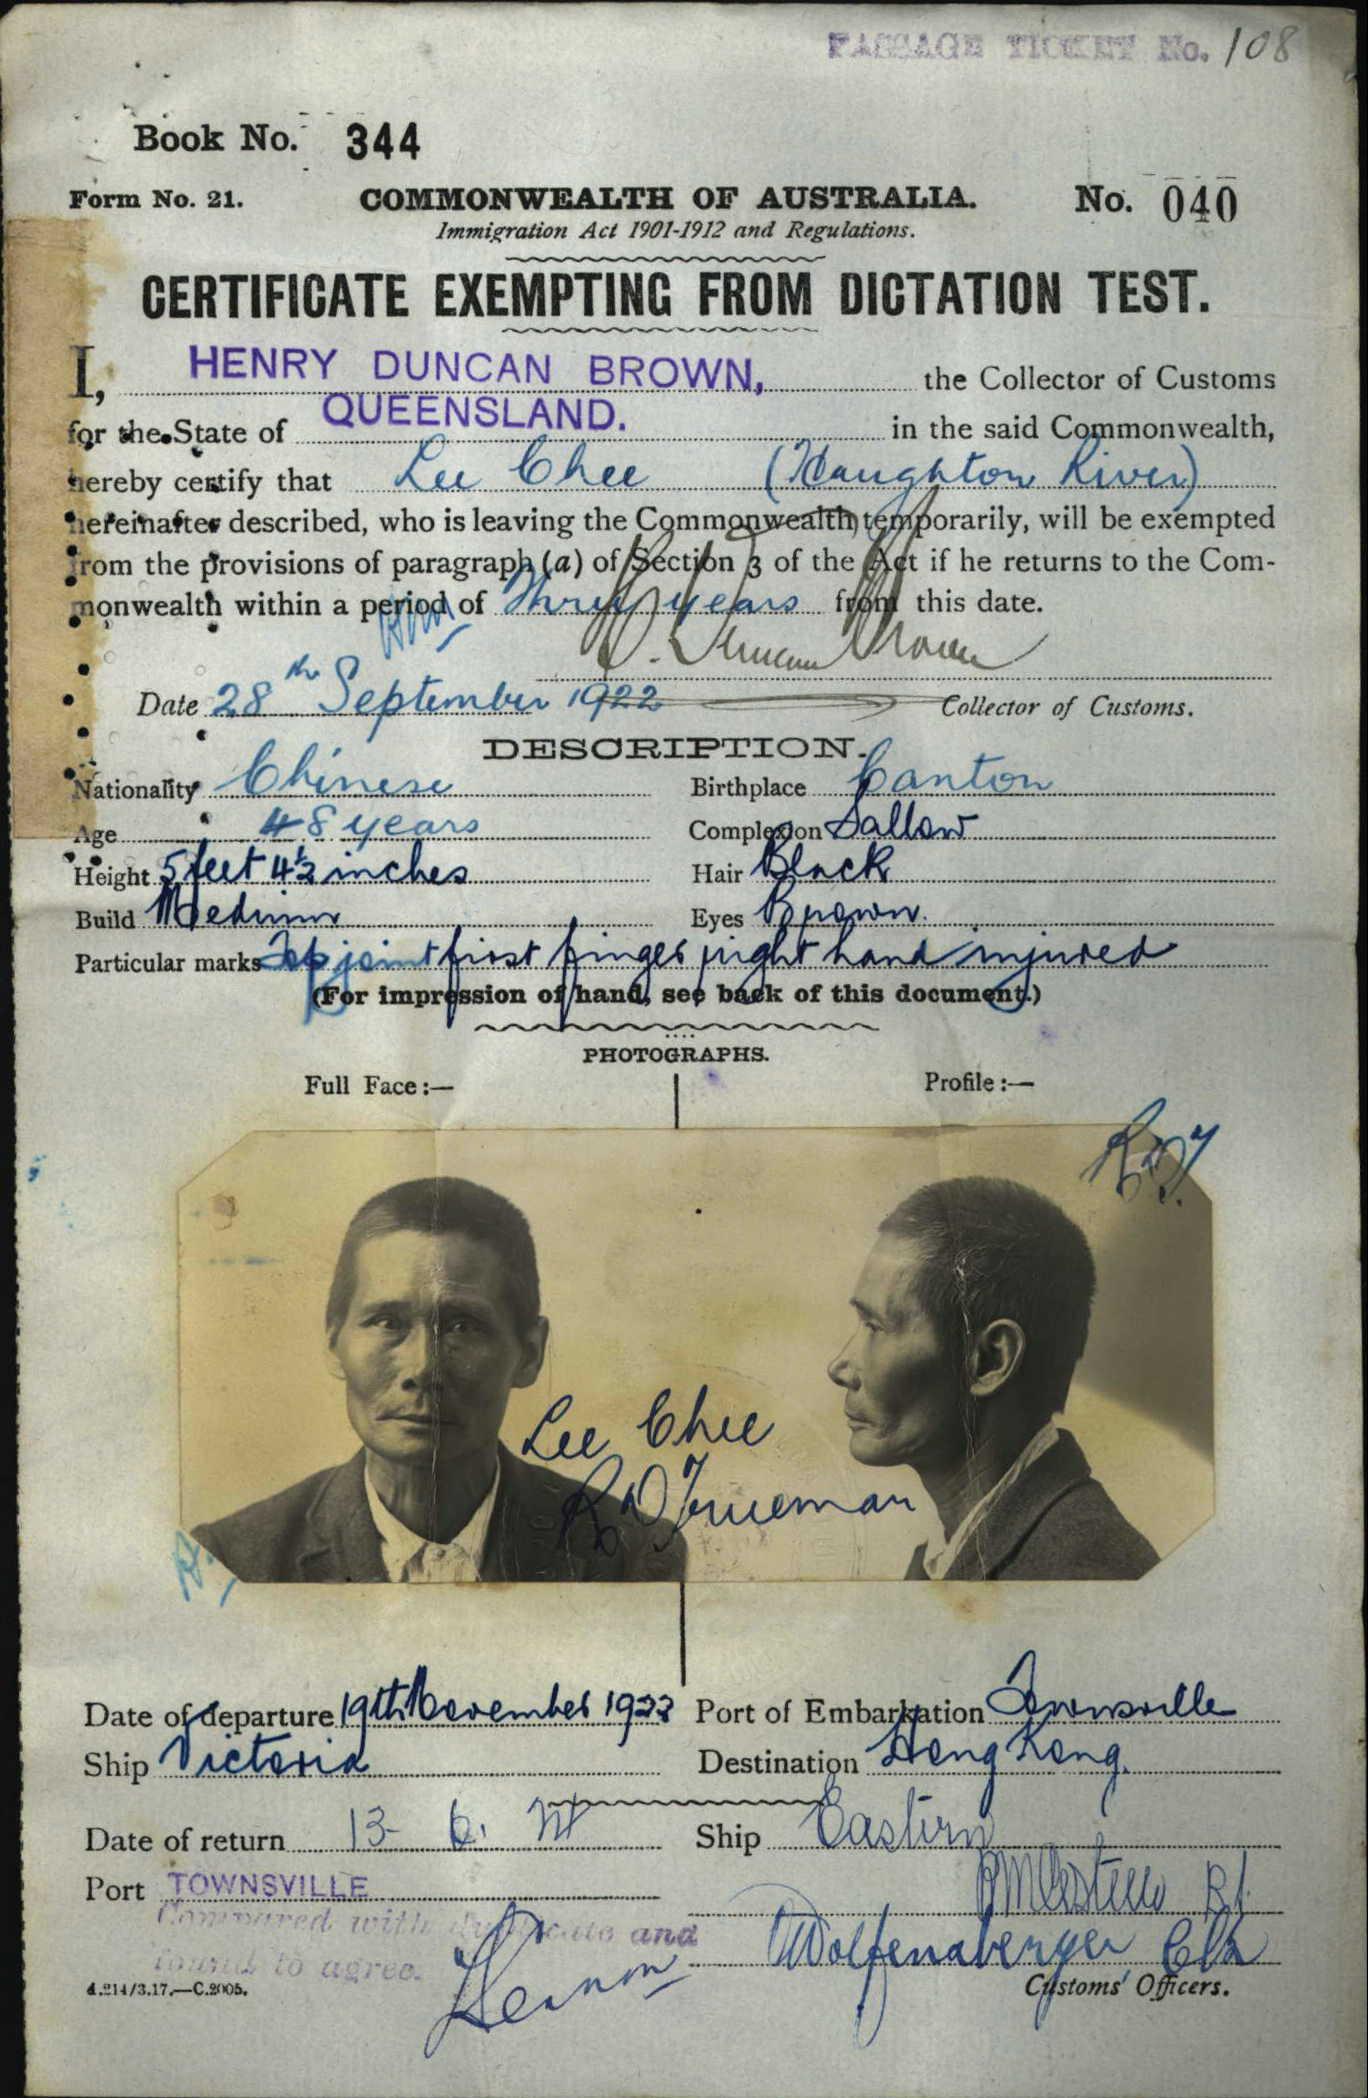 PASSAGE TICKET No. 108
Book No. 344
Form No. 21. COMMONWEALTH OF AUSTRALIA. No. 040
Immigration Act 1901-1912 and Regulations.
CERTIFICATE EXEMPTING FROM DICTATION TEST.
I, HENRY DUNCAN BROWN, the Collector of Customs
for the State of QUEENSLAND. in the said Commonwealth,
hereby certify that Lee Chee (Haughton River)
hereinafter described, who is leaving the Commonwealth temporarily, will be exempted
from the provisions of paragraph (a) of Section 3 of the Act if he returns to the Com-
monwealth within a period of Three years from this date.
H. Duncan Brown
Date 28th September 1922 Collector of Customs.
DESCRIPTION.
Nationality Chinese Birthplace Canton
Age 48 years Complexion Sallow
Height 5 feet 4½ inches Hair Black
Build Medium Eyes Brown.
Particular marks Top joint first finger right hand injured
(For impression of hand, see back of this document.)
PHOTOGRAPHS.
Full Face:— Profile:—
Lee Chee
R D Trueman
Date of departure 19th November 1922 Port of Embarkation Townsville
Ship Victoria Destination Hong Kong.
Date of return 13- 6. Ship Eastern
Port TOWNSVILLE
Compared with duplicate and
found to agree.
Wolfensberger
4.214/3.17.—C.2005. Customs' Officers.